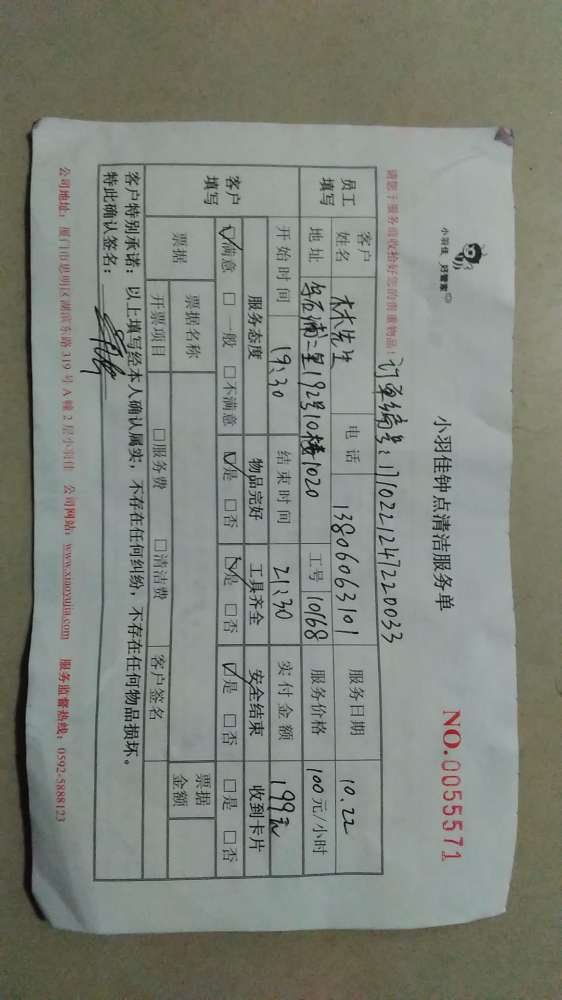 小羽佳 好管家
小羽佳钟点清洁服务单
NO.0055571
请您于服务前收拾好您的贵重物品！
订单编号:1710221247220033
员工填写
客户姓名 林先生 电话 13806063101 服务日期 10.22
地址 乌石浦二里192号10楼1020 工号 1068 服务价格 100元/小时
开始时间 19:30 结束时间 21:30 实付金额 199元
客户填写
服务态度 物品完好 工具齐全 安全结束 收到卡片
☑满意 □一般 □不满意 ☑是 □否 ☑是 □否 ☑是 □否 □是 □否
票据 票据名称 票据金额
开票项目 □服务费 □清洁费 客户签名
客户特别承诺：以上填写经本人确认属实，不存在任何纠纷，不存在任何物品损坏。
特此确认签名：
公司地址：厦门市思明区湖滨东路319号A幢2层小羽佳 公司网站：www.xiaoyujia.com 服务监督热线：0592-5888123